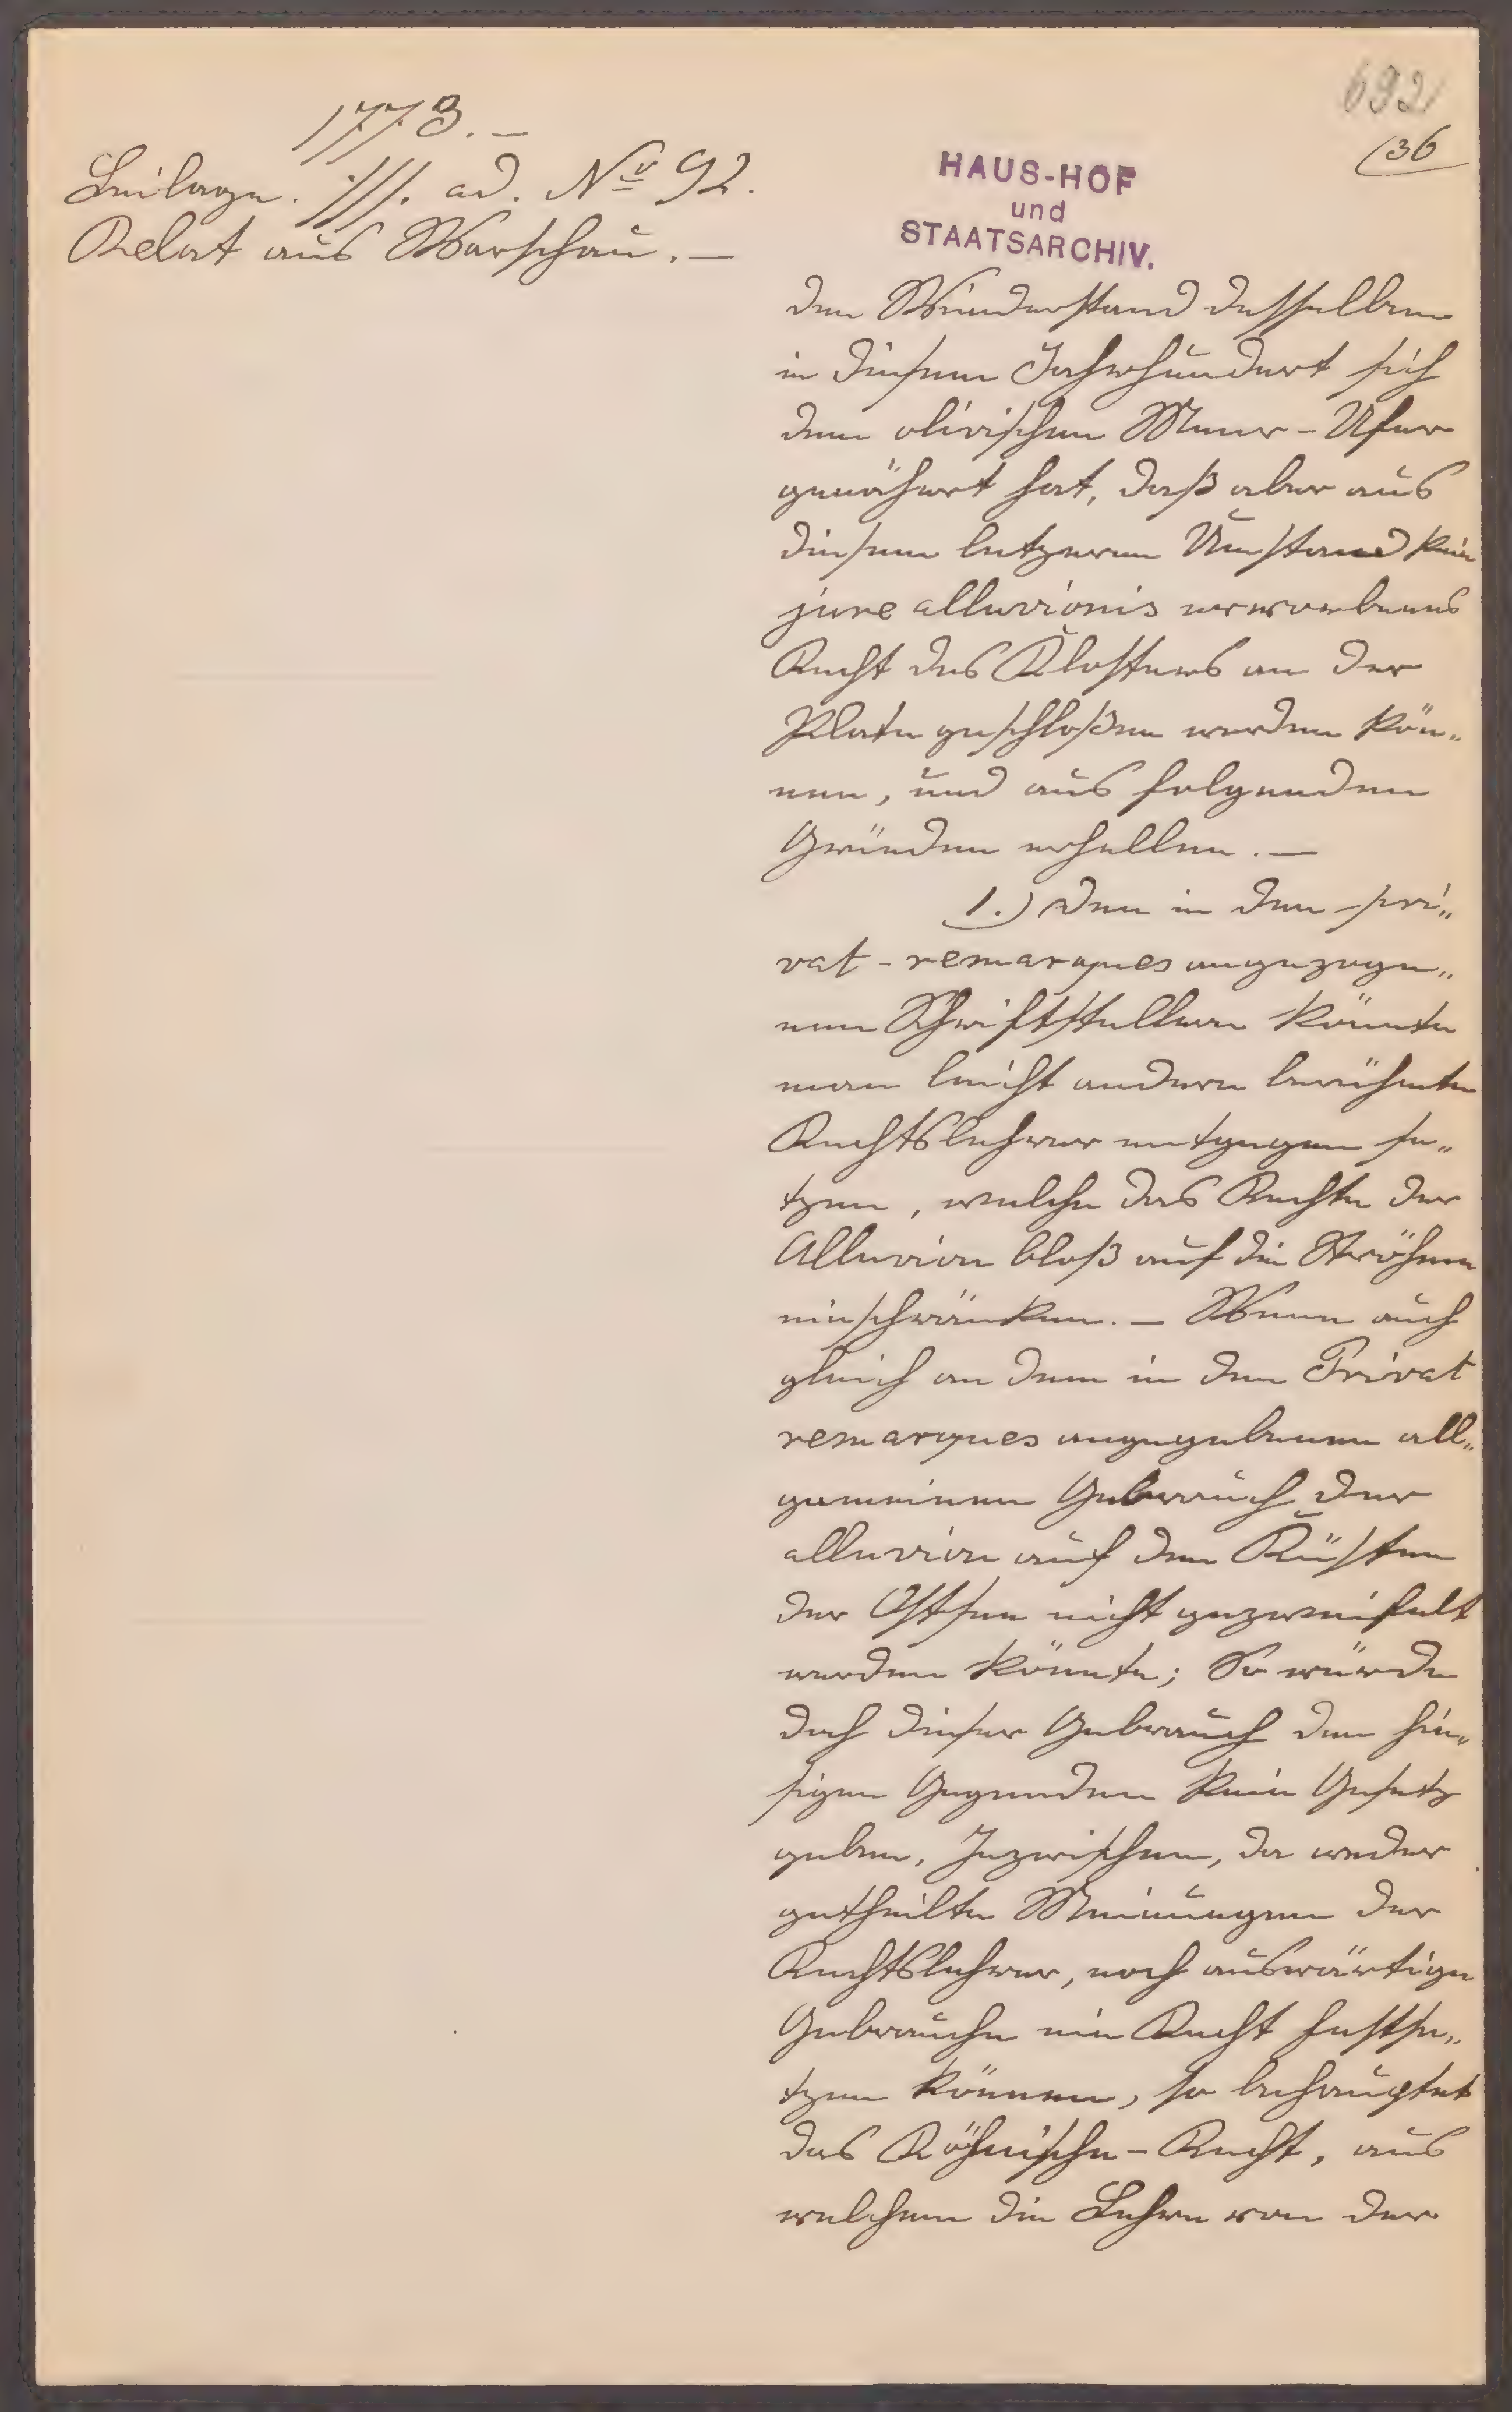 692
(36
1773. –
Beilage. ·///. ad. No 92.
Relat aus Warschau. –
HAUS-HOF
und
STAATSARCHIV.
den Wiederstand desselben
in diesem Jahrhundert sich
dem olivischen Meer-Ufer
genähert hat, daß aber aus
diesem letzeren Umstand kein
jure alluvionis erworbenes
Recht des Klosters an der
Plate geschloßen werden kön„
nen, und aus folgenden
Gründen erhellen. –
1.) Den in den pri„
vat-remarques angezoge„
nen Schriftstellern könnte
man leicht andere berühmte
Rechtslehrer entgegen se„
tzen, welche das Rechte der
Alluvion bloß auf die Ströhme
einschränken. – Wenn auch
gleich an dem in den Privat
remarques angegebenen all„
gemeinen Gebrauch der
alluvion auf den Küsten
der Ostsee nicht gezweifelt
werden könnte; So würde
doch dieser Gebrauch den hie„
sigen Gegenden kein Gesetz
geben. Inzwischen, da weder
getheilte Meinungen der
Rechtslehrer, noch auswärtige
Gebrauche ein Recht festse„
tzen können, so behauptet
das Röhmische-Recht, aus
welchem die Lehre von der